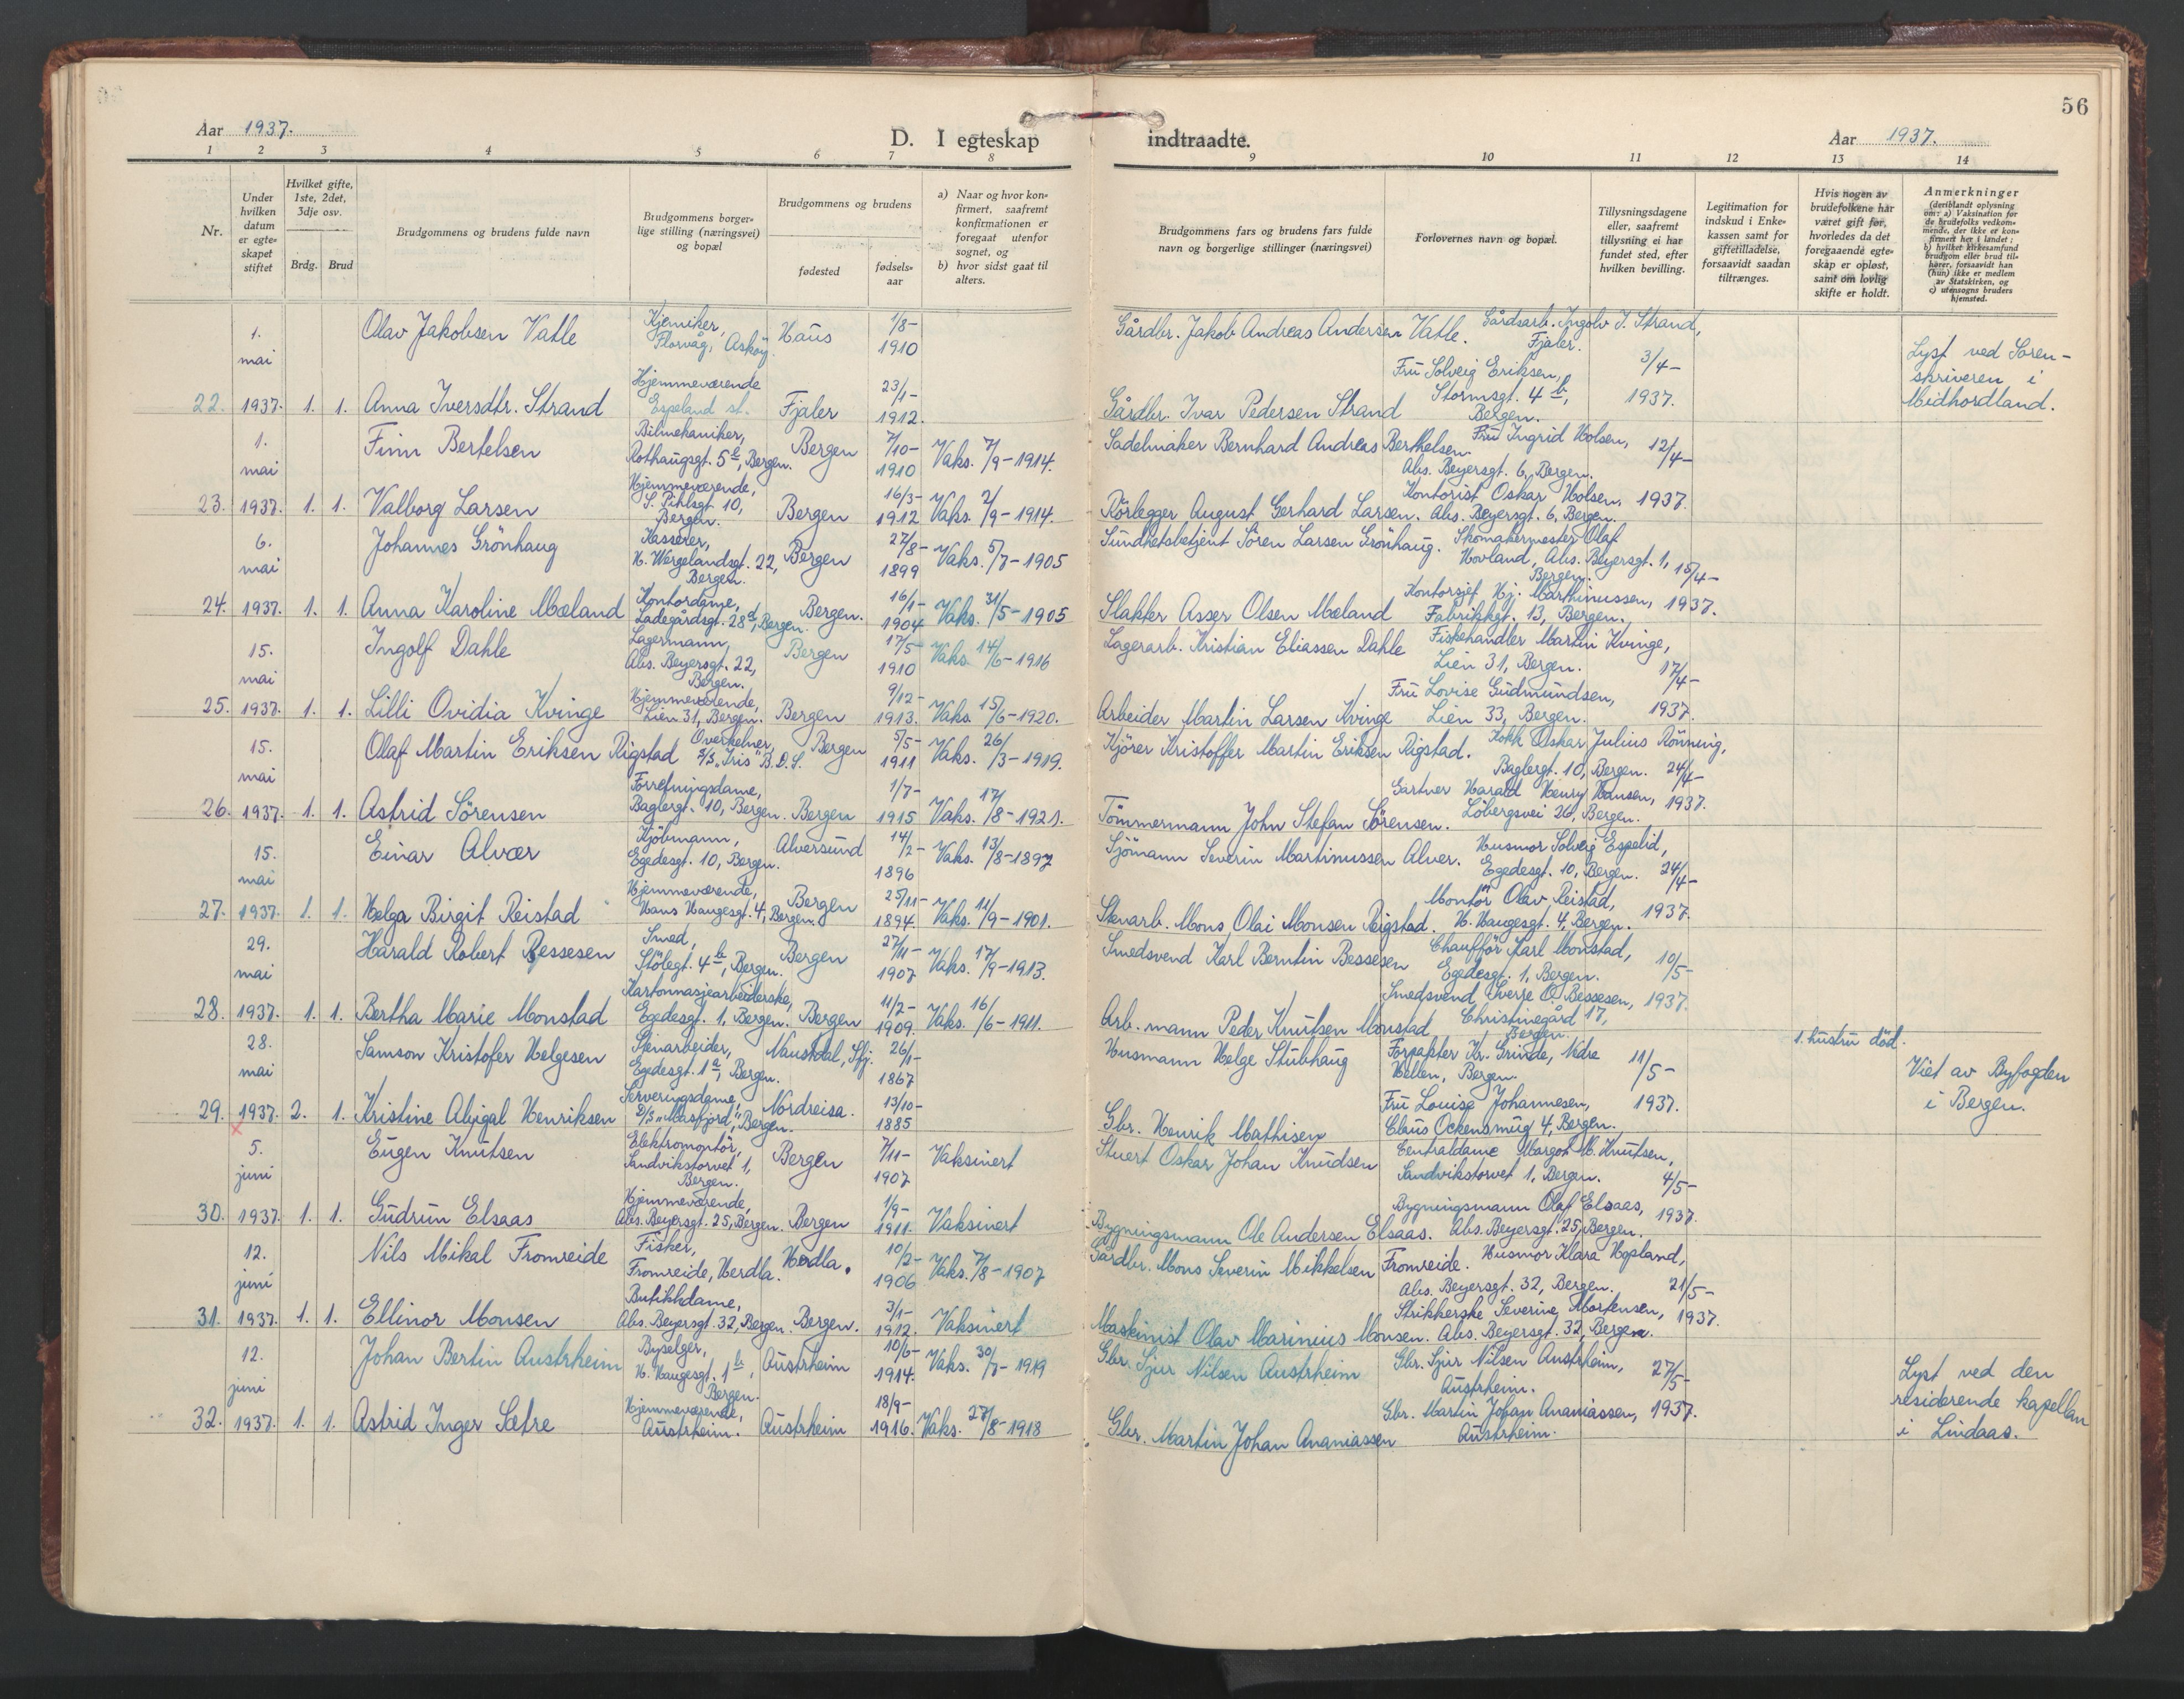 56
Aar 1937.
D. I egteskap indtraadte.
Aar 1937.
1 2 3 4 5 6 7 8 9 10 11 12 13 14
Nr.
Under hvilken datum er egte-skapet stiftet
Hvilket gifte, 1ste, 2det, 3dje osv.
Brdg. Brud
Brudgommens og brudens fulde navn
Brudgommens borger-lige stilling (næringsvei) og bopæl
Brudgommens og brudens
fødested
fødsels-aar
a) Naar og hvor kon-firmert, saafremt konfirmationen er foregaat utenfor sognet, og
b) hvor sidst gaat til alters.
Brudgommens fars og brudens fars fulde navn og borgerlige stillinger (næringsvei)
Forlovernes navn og bopæl.
Tillysningsdagene eller, saafremt tillysning ei har fundet sted, efter hvilken bevilling.
Legitimation for indskud i Enke-kassen samt for giftetilladelse, forsaavidt saadan tiltrænges.
Hvis nogen av brudefolkene har været gift før, hvorledes da det foregaaende egte-skap er opløst, samt om lovlig skifte er holdt.
Anmerkninger (deriblandt oplysning om: a) Vaksination for de brudefolks vedkom-mende, der ikke er kon-firmert her i landet; b) hvilket kirkesamfund brudgom eller brud til-hører, forsaavidt han (hun) ikke er medlem av Statskirken, og c) utensogns bruders hjemsted.
1. mai Olav Jakobsen Vatle Kjemiker, Florvåg, Askøy. Haus 1/8- 1910 Gårdbr. Jakob Andreas Andersen Vatle. Gårdsarb. Ingolv I. Strand, Fjaler. 3/4- Lyst ved Soren-skriveren i Midhordland.
22. 1937. 1. 1. Anna Iversdtr. Strand Hjemmeværende Espeland st. Fjaler 23/1- 1912. Gårdbr. Ivar Pedersen Strand Fru Solveig Eriksen, Stormsgt. 4 b, Bergen. 1937.
1. mai Finn Bertelsen Bilmekaniker, Rothaugsgt. 5 b, Bergen. Bergen 7/10- 1910 Vaks. 7/9-1914. Sadelmaker Bernhard Andreas Berthelsen. Fru Ingrid Holsen, Abs. Beyersgt. 6, Bergen. 12/4-
23. 1937. 1. 1. Valborg Larsen Hjemmeværende, S. Pihlsgt. 10, Bergen. Bergen 16/3- 1912 Vaks. 2/9-1914. Rörlegger August Gerhard Larsen. Kontorist Oskar Holsen, Abs. Beyersgt. 6, Bergen. 1937.
6. mai Johannes Grönhaug Kasserer, H. Wergelandsgt. 22, Bergen. Bergen 27/8- 1899 Vaks. 5/7-1905 Sundhetsbetjent Sören Larsen Grönhaug. Skomakermester Olaf Hovland, Abs. Beyersgt. 1, Bergen. 15/4-
24. 1937. 1. 1. Anna Karoline Mæland Kontordame, Ladegårdsgt. 28 d, Bergen. Bergen. 16/1- 1904 Vaks. 31/5-1905 Slakter Asser Olsen Mæland Kontorsjef Hj. Marthinussen, Fabrikkgt. 13, Bergen. 1937.
15. mai Ingolf Dahle Lagermann, Abs. Beyersgt. 22, Bergen. Bergen 17/5- 1910 Vaks. 14/6-1916 Lagerarb. Kristian Eliassen Dahle Fiskehandler Martin Kvinge, Lien 31, Bergen. 17/4-
25. 1937. 1. 1. Lilli Ovidia Kvinge Hjemmeværende, Lien 31, Bergen. Bergen 9/12- 1913. Vaks. 15/6-1920. Arbeider Martin Larsen Kvinge Fru Lovise Gudmundsen, Lien 33, Bergen. 1937.
15. mai Olaf Martin Eriksen Rigstad Overkelner, D/S "Iris" B.D.S. Bergen 5/5- 1911 Vaks. 26/3-1919. Kjörer Kristoffer Martin Eriksen Rigstad. Kokk Oskar Julius Rönning, Baglergt. 10, Bergen. 24/4-
26. 1937. 1. 1. Astrid Sörensen Forretningsdame, Baglergt. 10, Bergen. Bergen 1/7- 1915 Vaks. 17/8-1921. Tömmermann John Stefan Sörensen. Gartner Harald Henry Hansen, Löbergsvei 26, Bergen. 1937.
15. mai Einar Alvær Kjöbmann, Egedesgt. 10, Bergen. Alversund 14/2- 1896 Vaks. 13/8-1897 Sjömann Severin Martinussen Alver. Husmor Solveig Espelid, Egedesgt. 10, Bergen. 24/4-
27. 1937. 1. 1. Helga Birgit Reistad Hjemmeværende, Hans Haugesgt. 4, Bergen. Bergen 25/11- 1894. Vaks. 11/9-1901. Stenarb. Mons Olai Monsen Rigstad. Montör Olav Reistad, H. Haugesgt. 4, Bergen. 1937.
29. mai Harald Robert Bessesen Smed, Stölegt. 4 b, Bergen. Bergen 27/11- 1907 Vaks. 17/9-1913. Smedsvend Karl Berntin Bessesen Chauffför Karl Monstad, Egedesgt. 1, Bergen. 10/5-
28. 1937. 1. 1. Bertha Marie Monstad Kartonnasjearbeiderske, Egedesgt. 1, Bergen. Bergen 11/2- 1909. Vaks. 16/6-1911. Arb.mann Peder Knutsen Monstad Smedsvend Sverre O. Bessesen, Christinegård 17, Bergen. 1937.
28. mai Samson Kristofer Helgesen Stenarbeider, Egedesgt. 1 b, Bergen. Naustdal, Sfj. 26/1- 1867 Husmann Helge Stubhaug Forpakter Kr. Grinde, Nedre Hellen, Bergen. 11/5- 1. hustru död. Viet av Byfogden i Bergen.
29. 1937 2. 1. Kristine Abigal Henriksen Serveringsdame, D/S "Masfjord", Bergen. Nordreisa. 13/10- 1885 Gbr. Henrik Mathisen Fru Louise Johannesen, Claus Ockensmug 4, Bergen. 1937.
5. juni Eugen Knutsen Elektromontör, Sandvikstorvet 1, Bergen. Bergen 7/11- 1907 Vaksinert Stuert Oskar Johan Knudsen Centraldame Margot M. Knutsen, Sandvikstorvet 1, Bergen. 4/5-
30. 1937 1. 1. Gudrun Elsaas Hjemmeværende, Abs. Beyersgt. 25, Bergen. Bergen 1/9- 1911. Vaksinert Bygningsmann Ole Andersen Elsaas. Bygningsmann Olaf Elsaas, Abs. Beyersgt. 25, Bergen. 1937.
12. juni Nils Mikal Fromreide Fisker, Fromreide, Herdla. Herdla. 10/2- 1906 Vaks. 7/8-1907 Gårdbr. Mons Severin Mikkelsen Fromreide. Husmor Klara Hopland, Abs. Beyersgt. 32, Bergen. 21/5-
31. 1937. 1. 1. Ellinor Monsen Butikkdame, Abs. Beyersgt. 32, Bergen. Bergen. 3/1- 1912. Vaksinert Maskinist Olav Marinius Monsen. Strikkerske Severine Mortensen, Abs. Beyersgt. 32, Bergen. 1937.
12. juni Johan Bertin Austrheim Byselger, H. Haugesgt. 1 b, Bergen. Austrheim 10/6- 1914. Vaks. 30/7-1919 Gbr. Sjur Nilsen Austrheim Gbr. Sjur Nilsen Austrheim, Austrheim. 27/5- Lyst ved den residerende kapellan i Lindaas.
32. 1937. 1. 1. Astrid Inger Sætre Hjemmeværende, Austrheim. Austrheim 18/9- 1916. Vaks. 27/8-1918 Gbr. Martin Johan Ananiassen Gbr. Martin Johan Ananiassen, Austrheim. 1937.